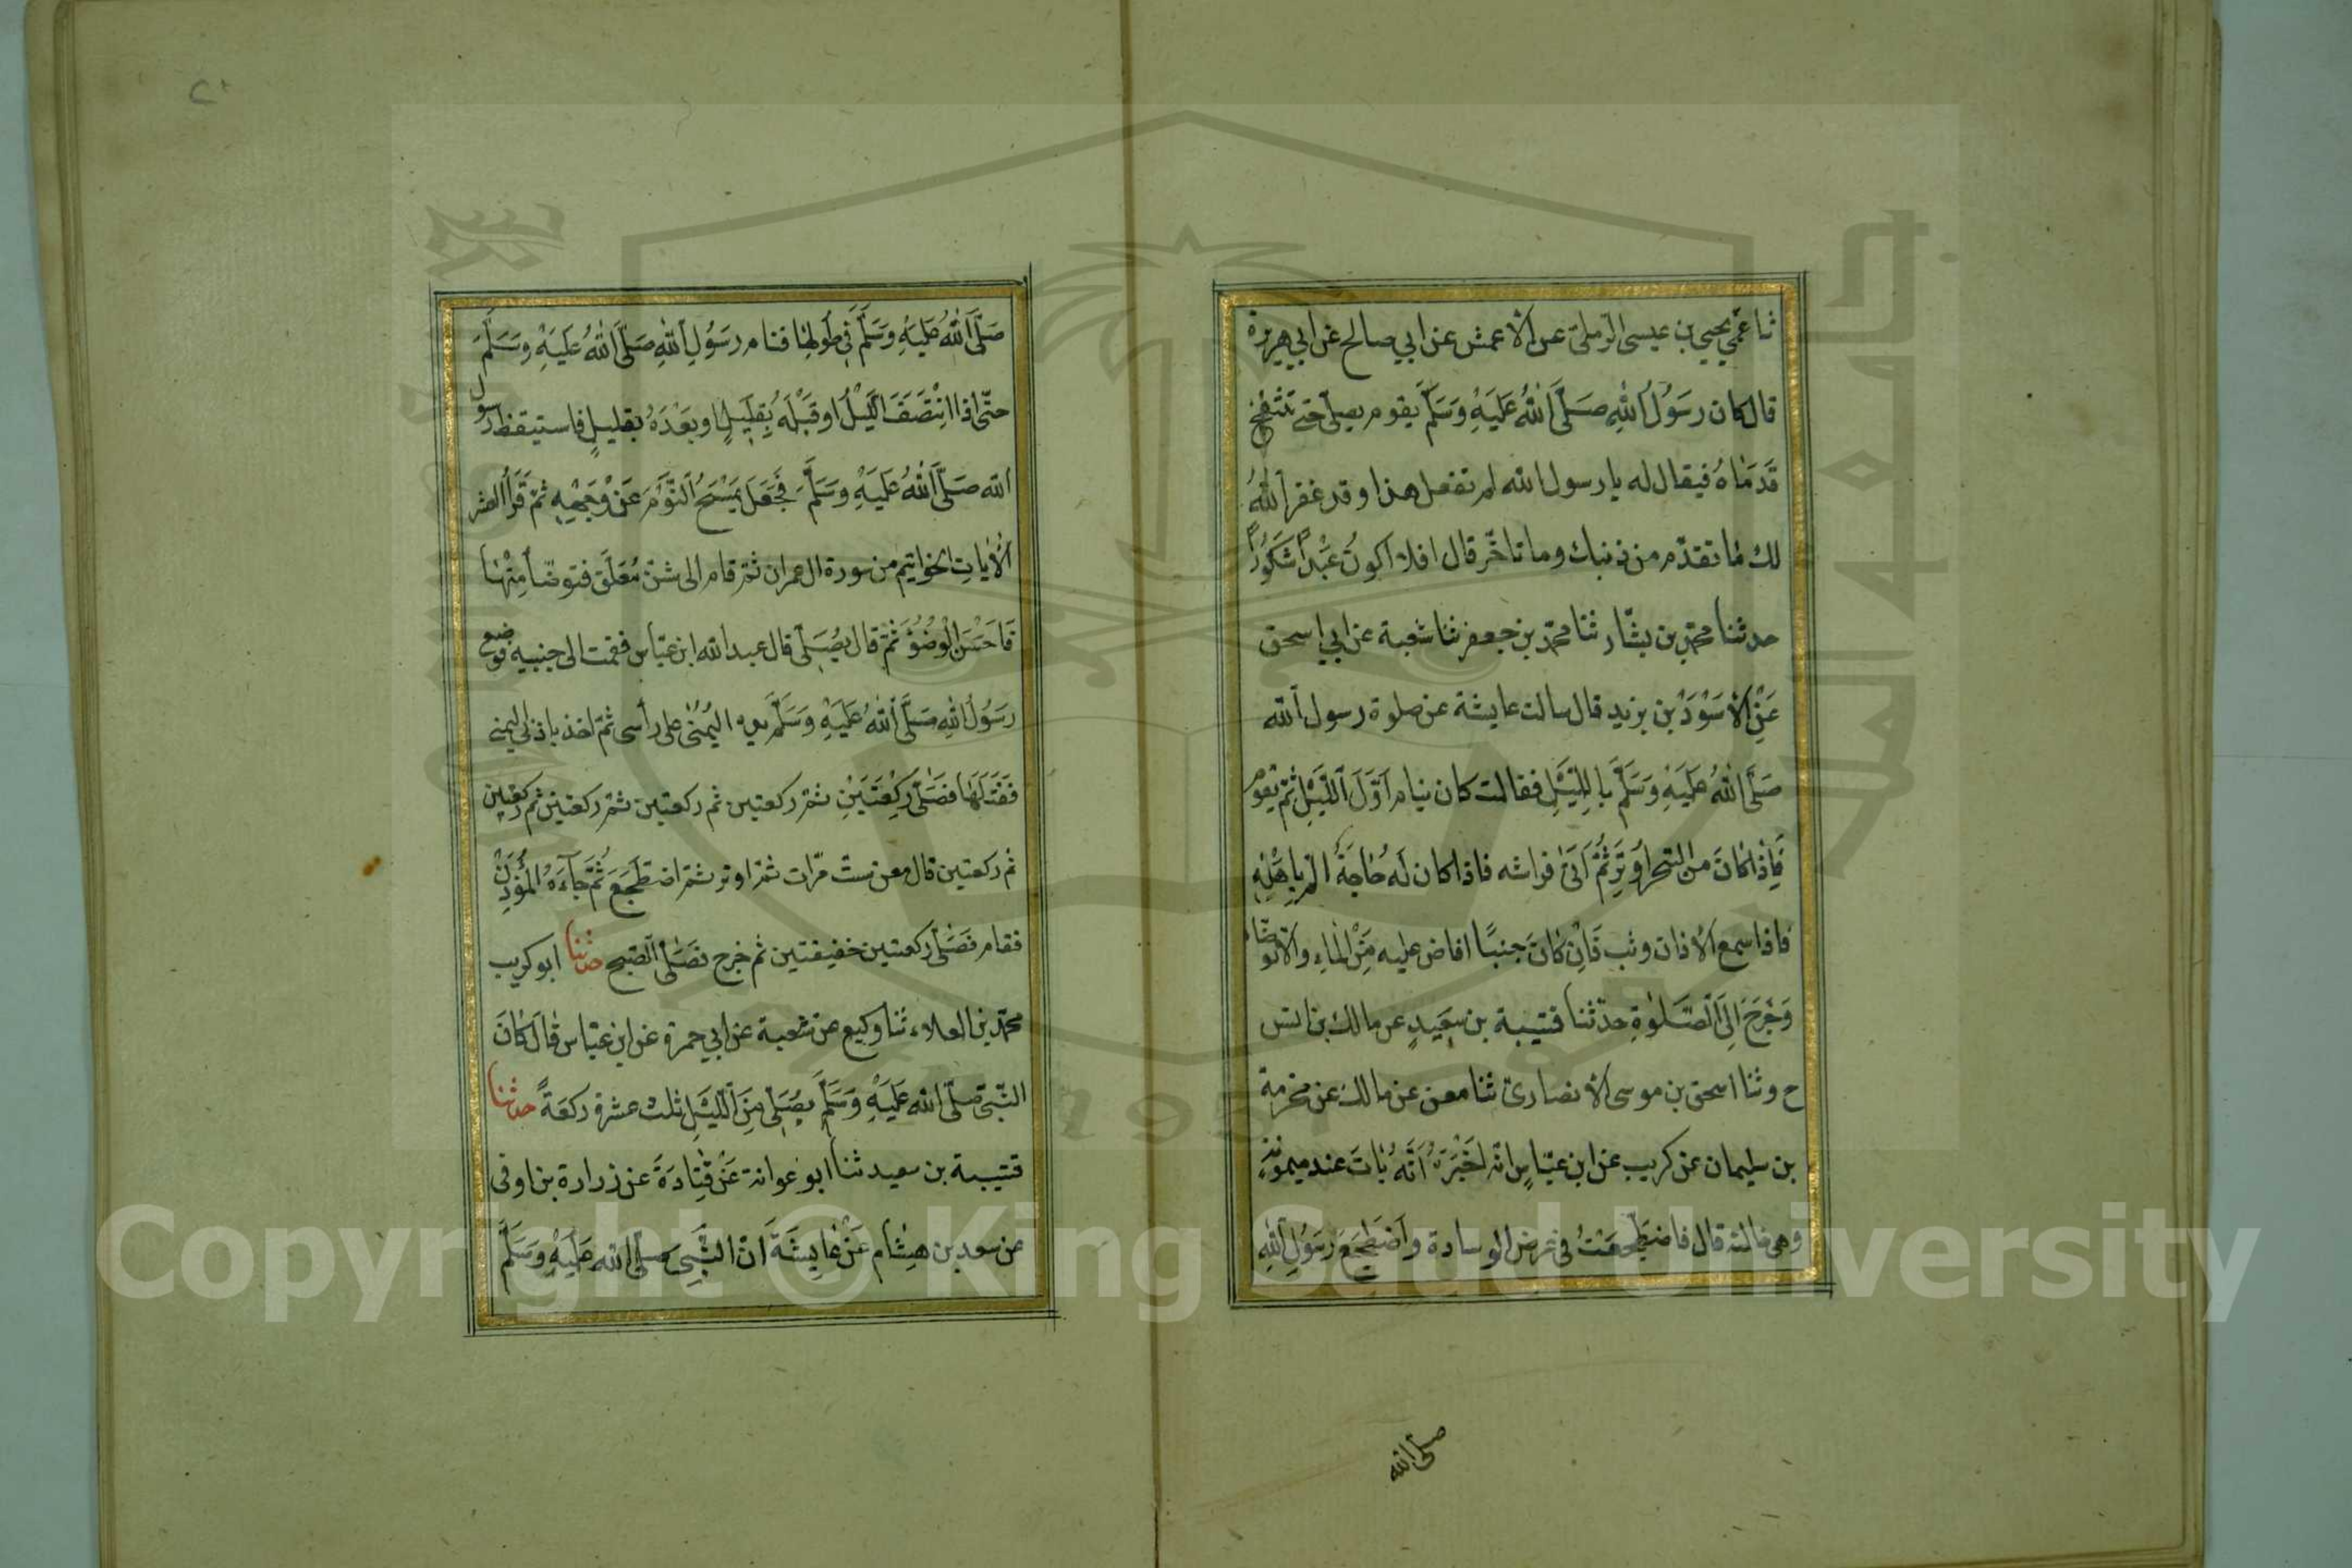 ثنا عمّي يحيى بن عيسى الرّملىّ عن الأعمش عن ابي صالح عن ابي هريرة
قال كان رَسُولُ اللهِ صَلَّى اللهُ عَلَيْهِ وَسَلَّمَ يقوم يصلّى حتى تنتفخ
قَدَمَاهُ فيقال له يا رسول الله لم تفعل هذا وقد غفر اللهُ
لك ما تقدّم من ذنبك وما تاخّر قال افلا اكونُ عَبْداً شَكُوراً
حدثنا محمّد بن بشّار ثنا محمّد بن جعفر ثنا شعبة عن ابي اسحق
عَنِ الأَسْوَدِ بْنِ يزيد قال سالت عايشة عن صلوة رسول الله
صَلَّى اللهُ عَلَيْهِ وَسَلَّمَ بِاللَّيْلِ فقالت كان ينام اَوَّلَ اللَّيْلِ ثُمَّ يقوم
فَاِذَا كَانَ من السّحر اَوْتَرَ ثُمَّ اَتَى فراشه فاذا كان لَهُ حَاجَةٌ المّ باهْلِهِ
فاذا سمع الأذان وثب فَاِنْ كَانَ جنبًا افاض عليه مِنَ الْمَاءِ والا توضّا
وَخَرَجَ اِلَى الصَّلوةِ حدّثنا قتيبة بن سَعِيدٍ عن مالك بن انس
ح وثنا اسحق بن موسى الأنصارىّ ثنا معن عن مالك عن مخرمة
بن سليمان عن كريب عن ابن عبّاسٍ انّه اَخْبَرَهُ اَنَّهُ بَاتَ عند ميمونة
وهى خالته قال فاضْطَجَعْتُ فى عرض الوسادة وَاضْطَجَعَ رَسُولُ اللهِ
صلى الله
٢٠
صَلَّى اللهُ عَلَيْهِ وَسَلَّمَ فِي طُولِهَا فنام رَسُولُ اللهِ صَلَّى اللهُ عَلَيْهِ وَسَلَّمَ
حتّى اذا انْتَصَفَ اللَّيْلُ او قَبْلَهُ بِقَلِيلٍ او بَعْدَهُ بقليلٍ فاستيقظ رسول
الله صَلَّى اللهُ عَلَيْهِ وَسَلَّمَ فَجَعَلَ يَمْسَحُ النَّوْمَ عَنْ وَجْهِهِ ثمّ قَرَأَ العشر
الأيَاتِ الخواتيم من سورة ال عمران ثمّ قام الى شنّ مُعَلَّقٍ فتوضّأ مِنْهَا
فَاَحْسَنَ الْوُضُوءَ ثُمَّ قال يُصَلِّى قال عبد الله ابن عبّاس فقمت الى جنبه فوضع
رَسُولُ اللهِ صَلَّى اللهُ عَلَيْهِ وَسَلَّمَ يده اليُمْنَى على رأسى ثمّ اخذ باذنى اليمنى
فَفَتَلَهَا فَصَلَّى رَكْعَتَيْنِ ثمّ ركعتين ثم ركعتين ثمّ ركعتين ثم ركعتين
ثم ركعتين قال معن ستّ مرّات ثمّ اوتر ثمّ اضطَجَعَ ثُمَّ جَآءَهُ الْمُؤَذِّنُ
فقام فَصَلَّى ركعتين خفيفتين ثم خرج فَصَلَّى الصّبح حدثنا ابو كريب
محمّد بن العلاء ثنا وكيع عن شعبة عن ابي جمرة عن ابن عبّاس قَالَ كَانَ
النّبىّ صلّى الله عَلَيْهِ وَسَلَّمَ يُصَلِّى مِنَ اللَّيْلِ ثلث عشرة ركعَةً حدثنا
قتيبة بن سعيد ثنا ابو عوانة عَنْ قَتَادَةَ عن زرارة بن اوفى
عن سعد بن هِشَام عَنْ عَايِشَةَ انّ النَّبِىَّ صَلَّى الله عَلَيْهِ وَسَلَّمَ
Copyright © King Saud University